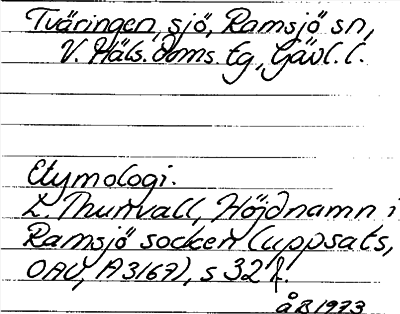 Tväringen, sjö, Ramsjö sn,
V. Häls. doms. tg, Gävl. l.
Etymologi.
L. Thunvall, Höjdnamn i
Ramsjö socken (uppsats,
OAU, A3167), s 32 f.
å R 1973